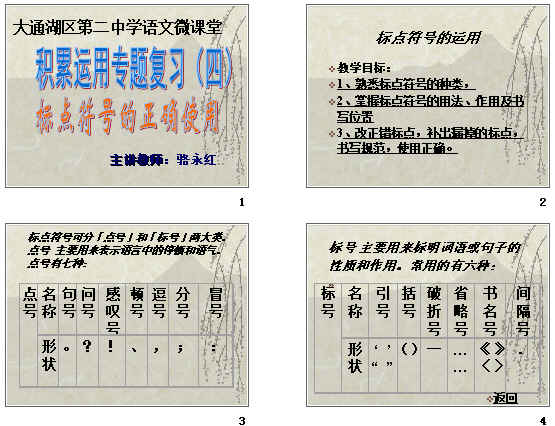 大通湖区第二中学语文微课堂
积累运用专题复习（四）
标点符号的正确使用
主讲教师：骆永红
1
标点符号的运用
教学目标：
1、熟悉标点符号的种类，
2、掌握标点符号的用法、作用及书
写位置
3、改正错标点，补出漏掉的标点，
书写规范，使用正确。
2
标点符号可分「点号」和「标号」两大类。
点号 主要用来表示语言中的停顿和语气。
点号有七种：
点号 名称 句号 问号 感叹号 顿号 逗号 分号 冒号
形状 。 ？ ！ 、 ， ； ：
3
标号 主要用来标明词语或句子的
性质和作用。常用的有六种：
标号 名称 引号 括号 破折号 省略号 书名号 间隔号
形状 ‘ ’ “ ” （） — …… 《》〈〉 .
返回
4